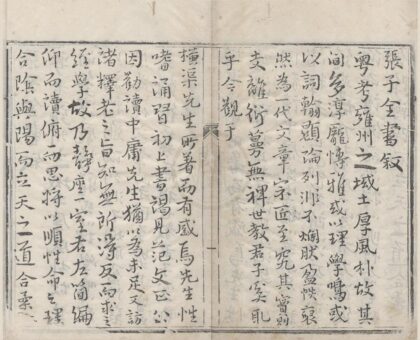 張子全書叙
粤考雍州之域土厚風朴故其
間多淳龎愽雅或以理學鳴或
以詞翰顯論列非不爛肰盈帙裒
然為一代文章宗匠至究其實則
支離衍蔓無裨世教君子奚取
乎今觀于
横渠先生所著而有感焉先生性
嗜涌習初上書謁見范文正公
因勸讀中庸先生猶以為未足又訪
諸釋老之旨知無所得反而求之
經學故乃靜座一室右左簡編
仰而讀俯而思將以順性命之理
合陰與陽而立天之道合柔